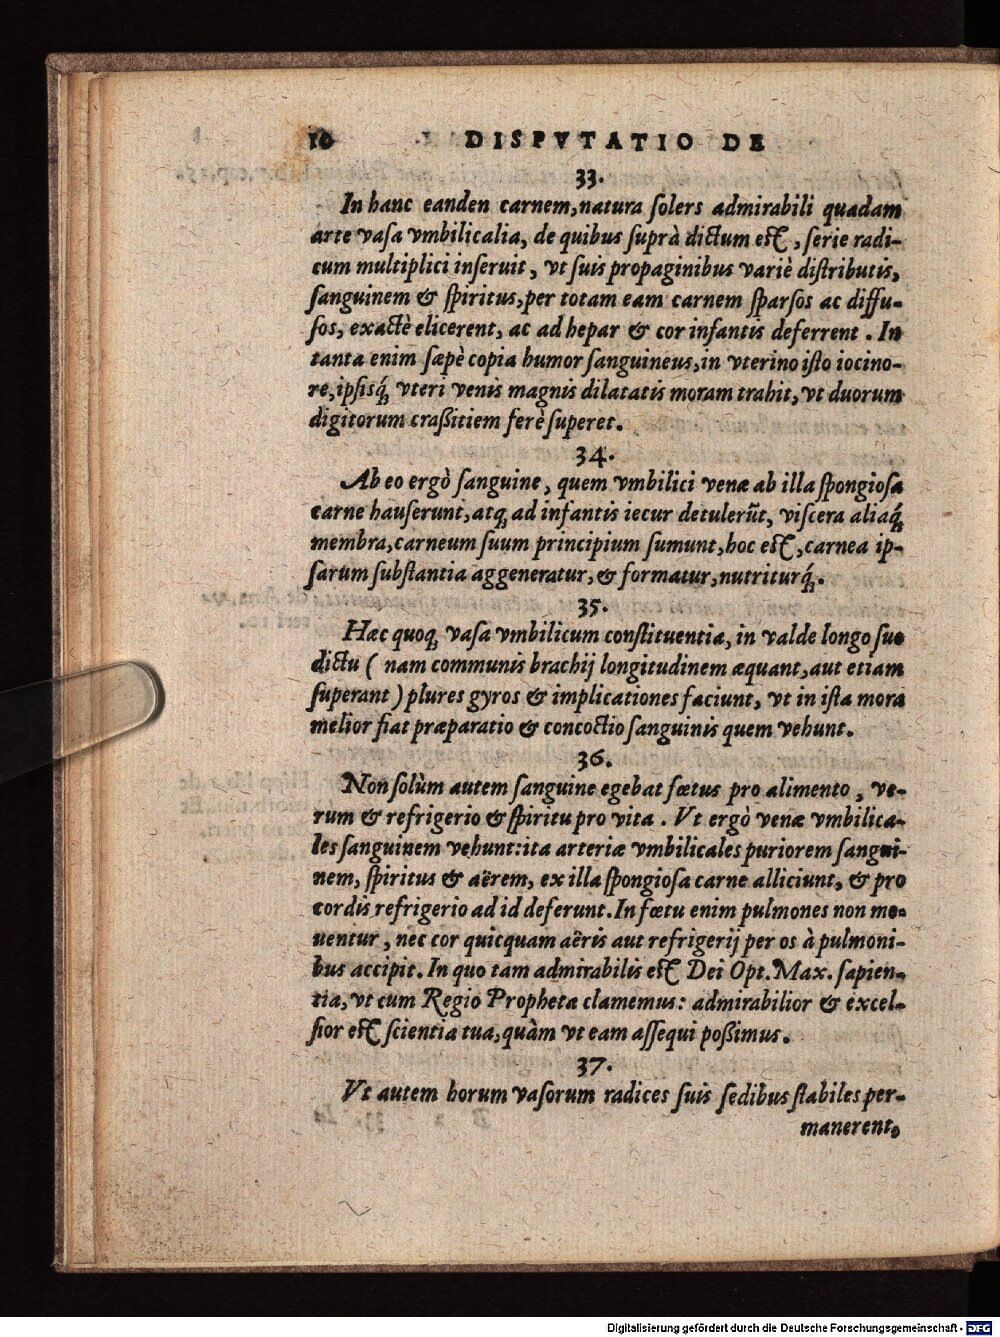 10 DISPVTATIO DE
33.
In hanc eanden carnem, natura solers admirabili quadam
arte vasa vmbilicalia, de quibus suprà dictum est, serie radi-
cum multiplici inseruit, vt suis propaginibus variè distributis,
sanguinem & spiritus, per totam eam carnem sparsos ac diffu-
sos, exactè elicerent, ac ad hepar & cor infantis deferrent. In
tanta enim sæpè copia humor sanguineus, in vterino isto iocino-
re, ipsisq́; vteri venis magnis dilatatis moram trahit, vt duorum
digitorum craßitiem ferè superet.
34.
Ab eo ergò sanguine, quem vmbilici venæ ab illa spongiosa
carne hauserunt, atq; ad infantis iecur detulerũt, viscera aliaq́;
membra, carneum suum principium sumunt, hoc est, carnea ip-
sarum substantia aggeneratur, & formatur, nutriturq́;.
35.
Hæc quoq; vasa vmbilicum constituentia, in valde longo suo
dictu ( nam communis brachij longitudinem æquant, aut etiam
superant ) plures gyros & implicationes faciunt, vt in ista mora
melior fiat præparatio & concoctio sanguinis quem vehunt.
36.
Non solùm autem sanguine egebat fœtus pro alimento, ve-
rum & refrigerio & spiritu pro vita. Vt ergò venæ vmbilica-
les sanguinem vehunt: ita arteriæ vmbilicales puriorem sangui-
nem, spiritus & aërem, ex illa spongiosa carne alliciunt, & pro
cordis refrigerio ad id deferunt. In fœtu enim pulmones non mo-
uentur, nec cor quicquam aëris aut refrigerij per os à pulmoni-
bus accipit. In quo tam admirabilis est Dei Opt. Max. sapien-
tia, vt cum Regio Propheta clamemus: admirabilior & excel-
sior est scientia tua, quàm vt eam assequi poßimus.
37.
Vt autem horum vasorum radices suis sedibus stabiles per-
manerent,
Digitalisierung gefördert durch die Deutsche Forschungsgemeinschaft - DFG